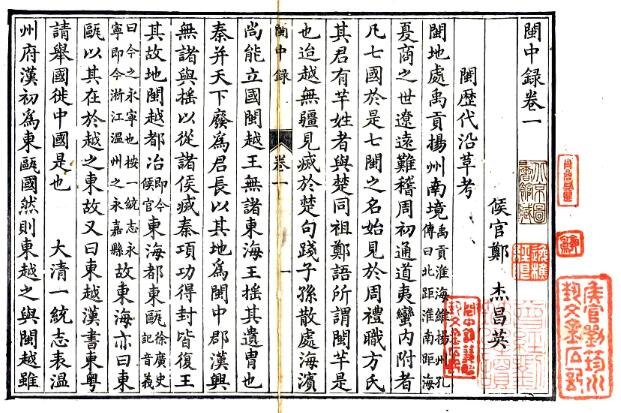 閩中録卷一
閩歴代沿革考
侯官鄭　杰昌英
閩地處禹貢揚州南境禹貢淮海維揚州孔傳曰北距淮南距海
夏商之世遼遠難稽周初通道夷蠻内附者
凡七國於是七閩之名始見於周禮職方氏
其君有芈姓者與楚同祖鄭語所謂閩芈是
也迨越無疆見滅於楚句踐子孫散處海濱
閩中録
卷一
一
尚能立國閩越王無諸東海王揺其遺胄也
秦并天下廢爲君長以其地爲閩中郡漢興
無諸與揺以從諸侯滅秦項功得封皆復王
其故地閩越都冶即今侯官東海都東甌徐廣史記音義
曰今之永寧也按一統志永寧即今浙江温州之永嘉縣故東海亦曰東
甌以其在於越之東故又曰東越漢書東粤
請舉國徙中國是也　大清一統志表温
州府漢初爲東甌國然則東越之與閩越雖